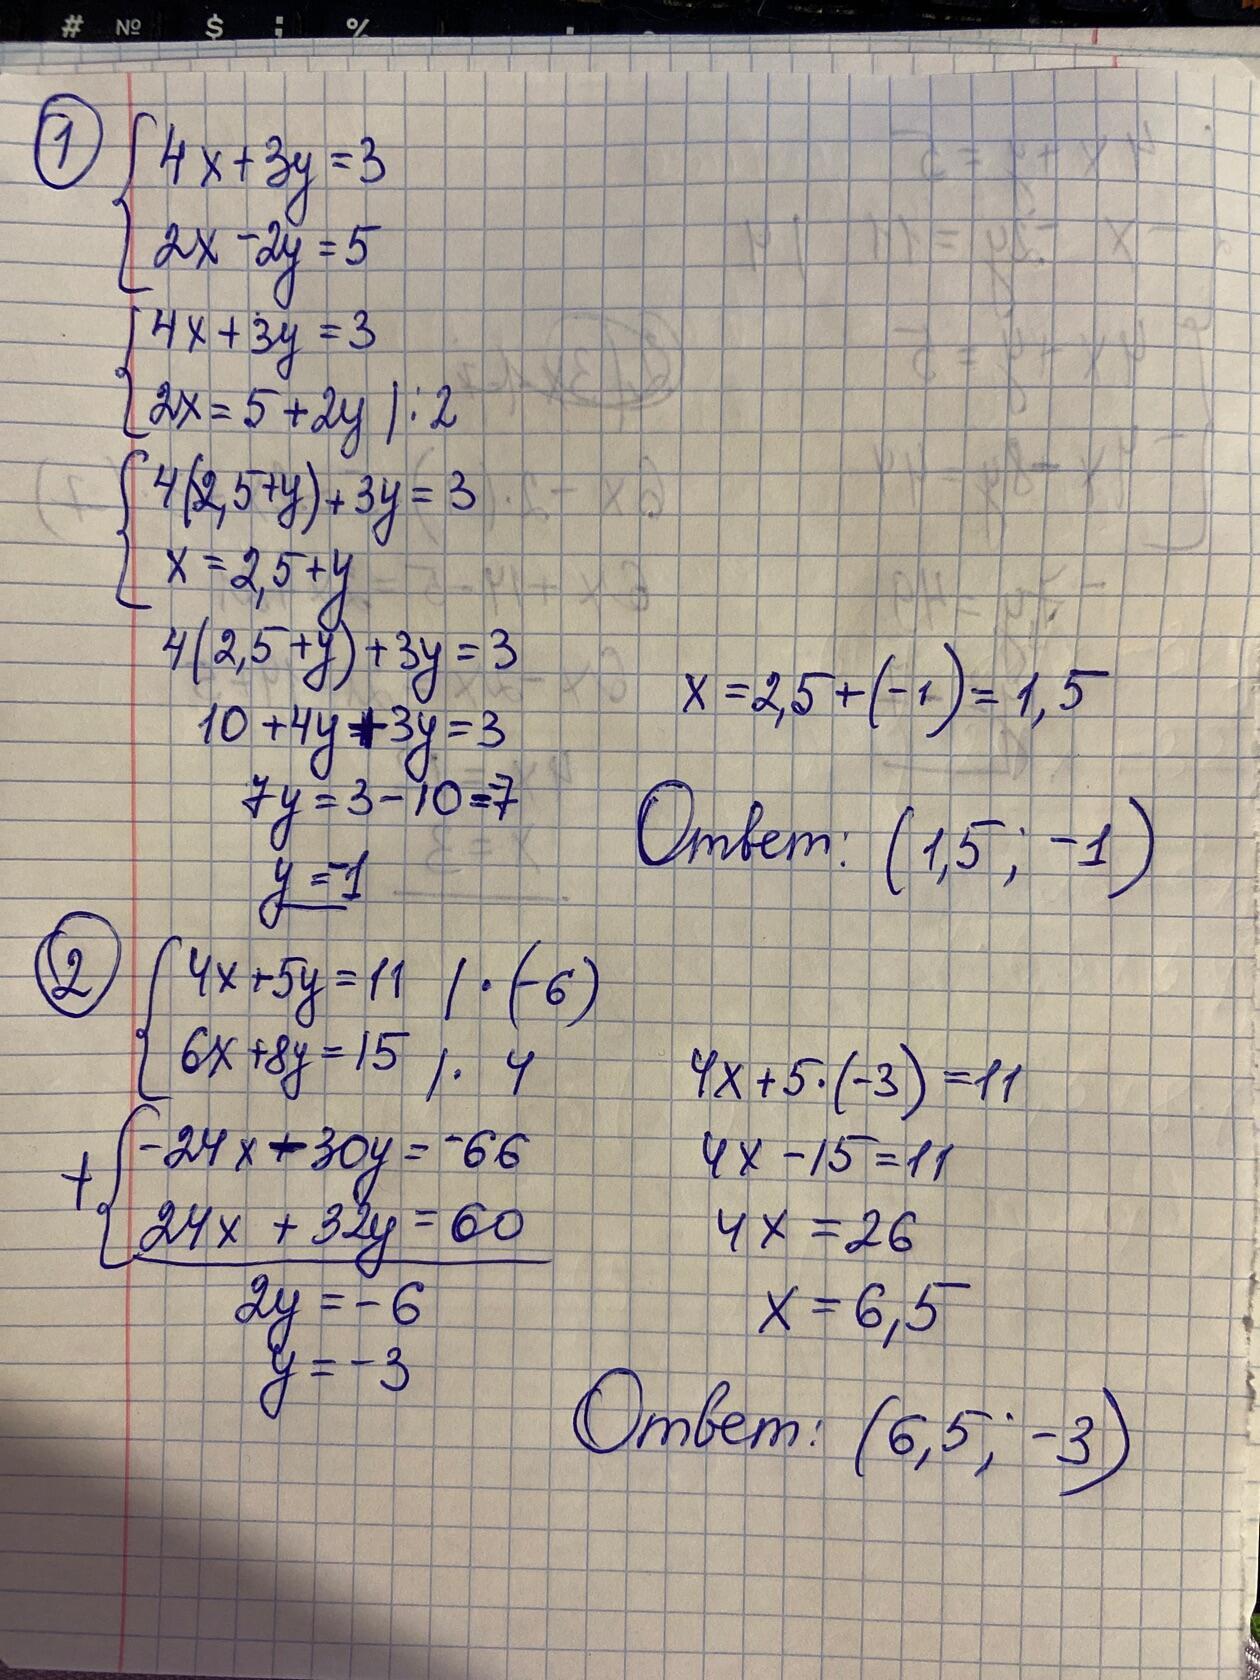 # № $ ; %
1
4x+3y=3
2x-2y=5
4x+3y=3
2x=5+2y |:2
4(2,5+y)+3y=3
x=2,5+y
4(2,5+y)+3y=3
10+4y+3y=3
7y=3-10=-7
y=-1
x=2,5+(-1)=1,5
Ответ: (1,5; -1)
2
4x+5y=11 |·(-6)
6x+8y=15 |· 4
+ -24x-30y=-66
24x+32y=60
2y=-6
y=-3
4x+5·(-3)=11
4x-15=11
4x=26
x=6,5
Ответ: (6,5; -3)